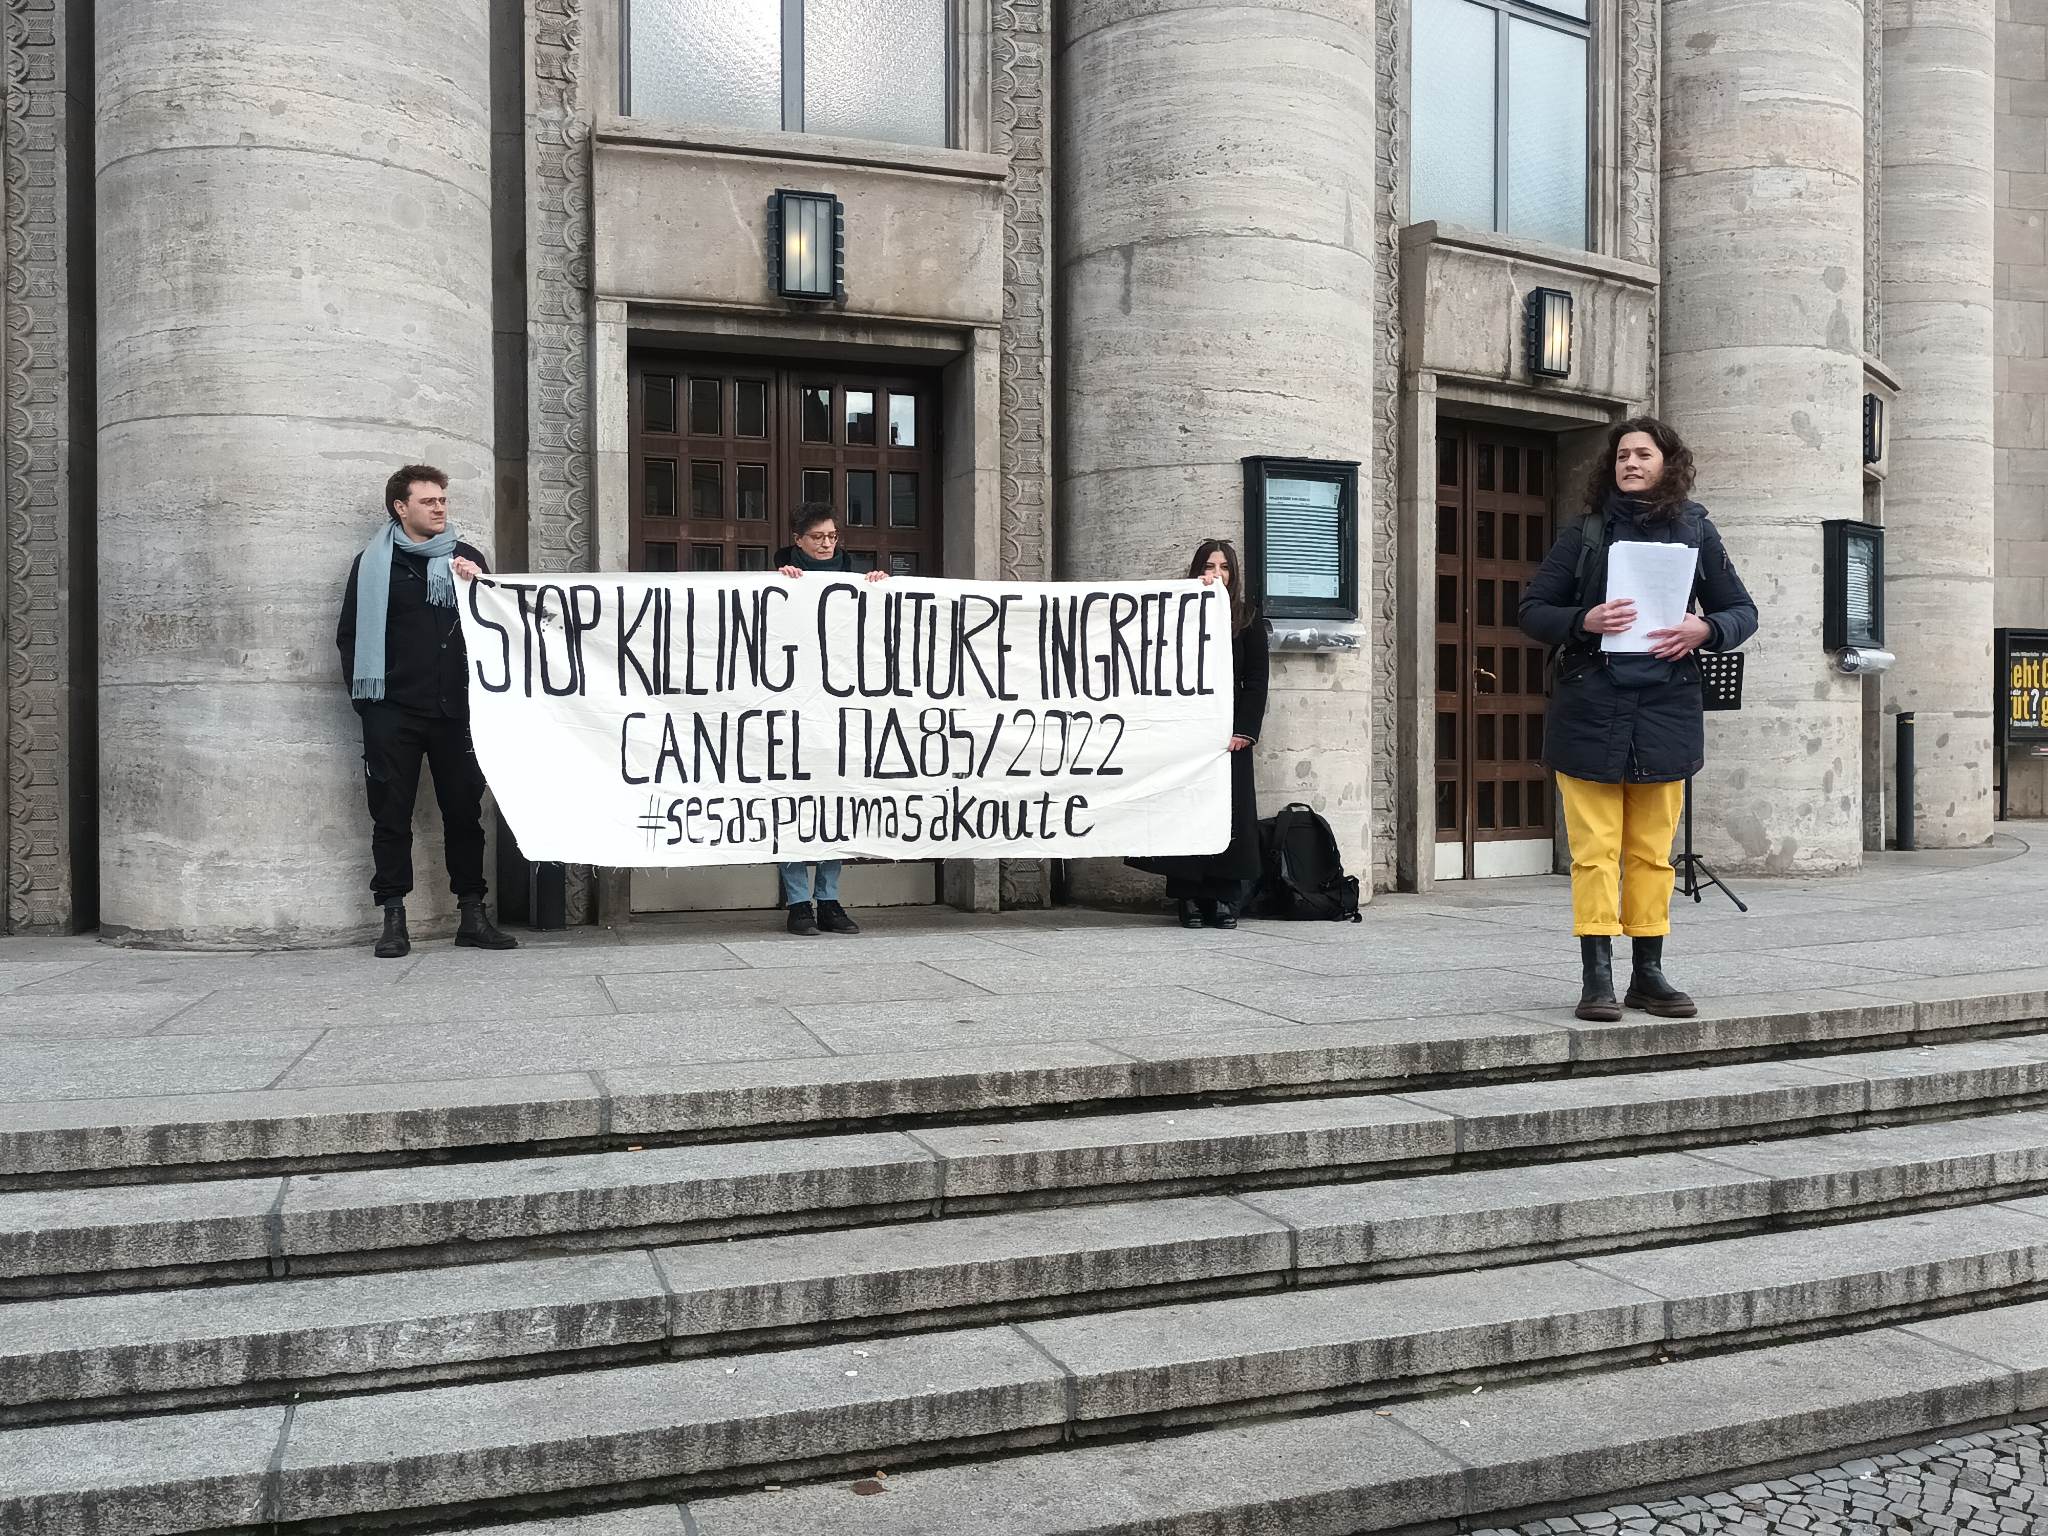 STOP KILLING CULTURE IN GREECE
CANCEL ΠΔ85/2022
#sesaspoumasakoute